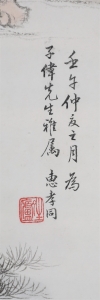 壬午仲夏之月為
子偉先生雅属 惠孝同